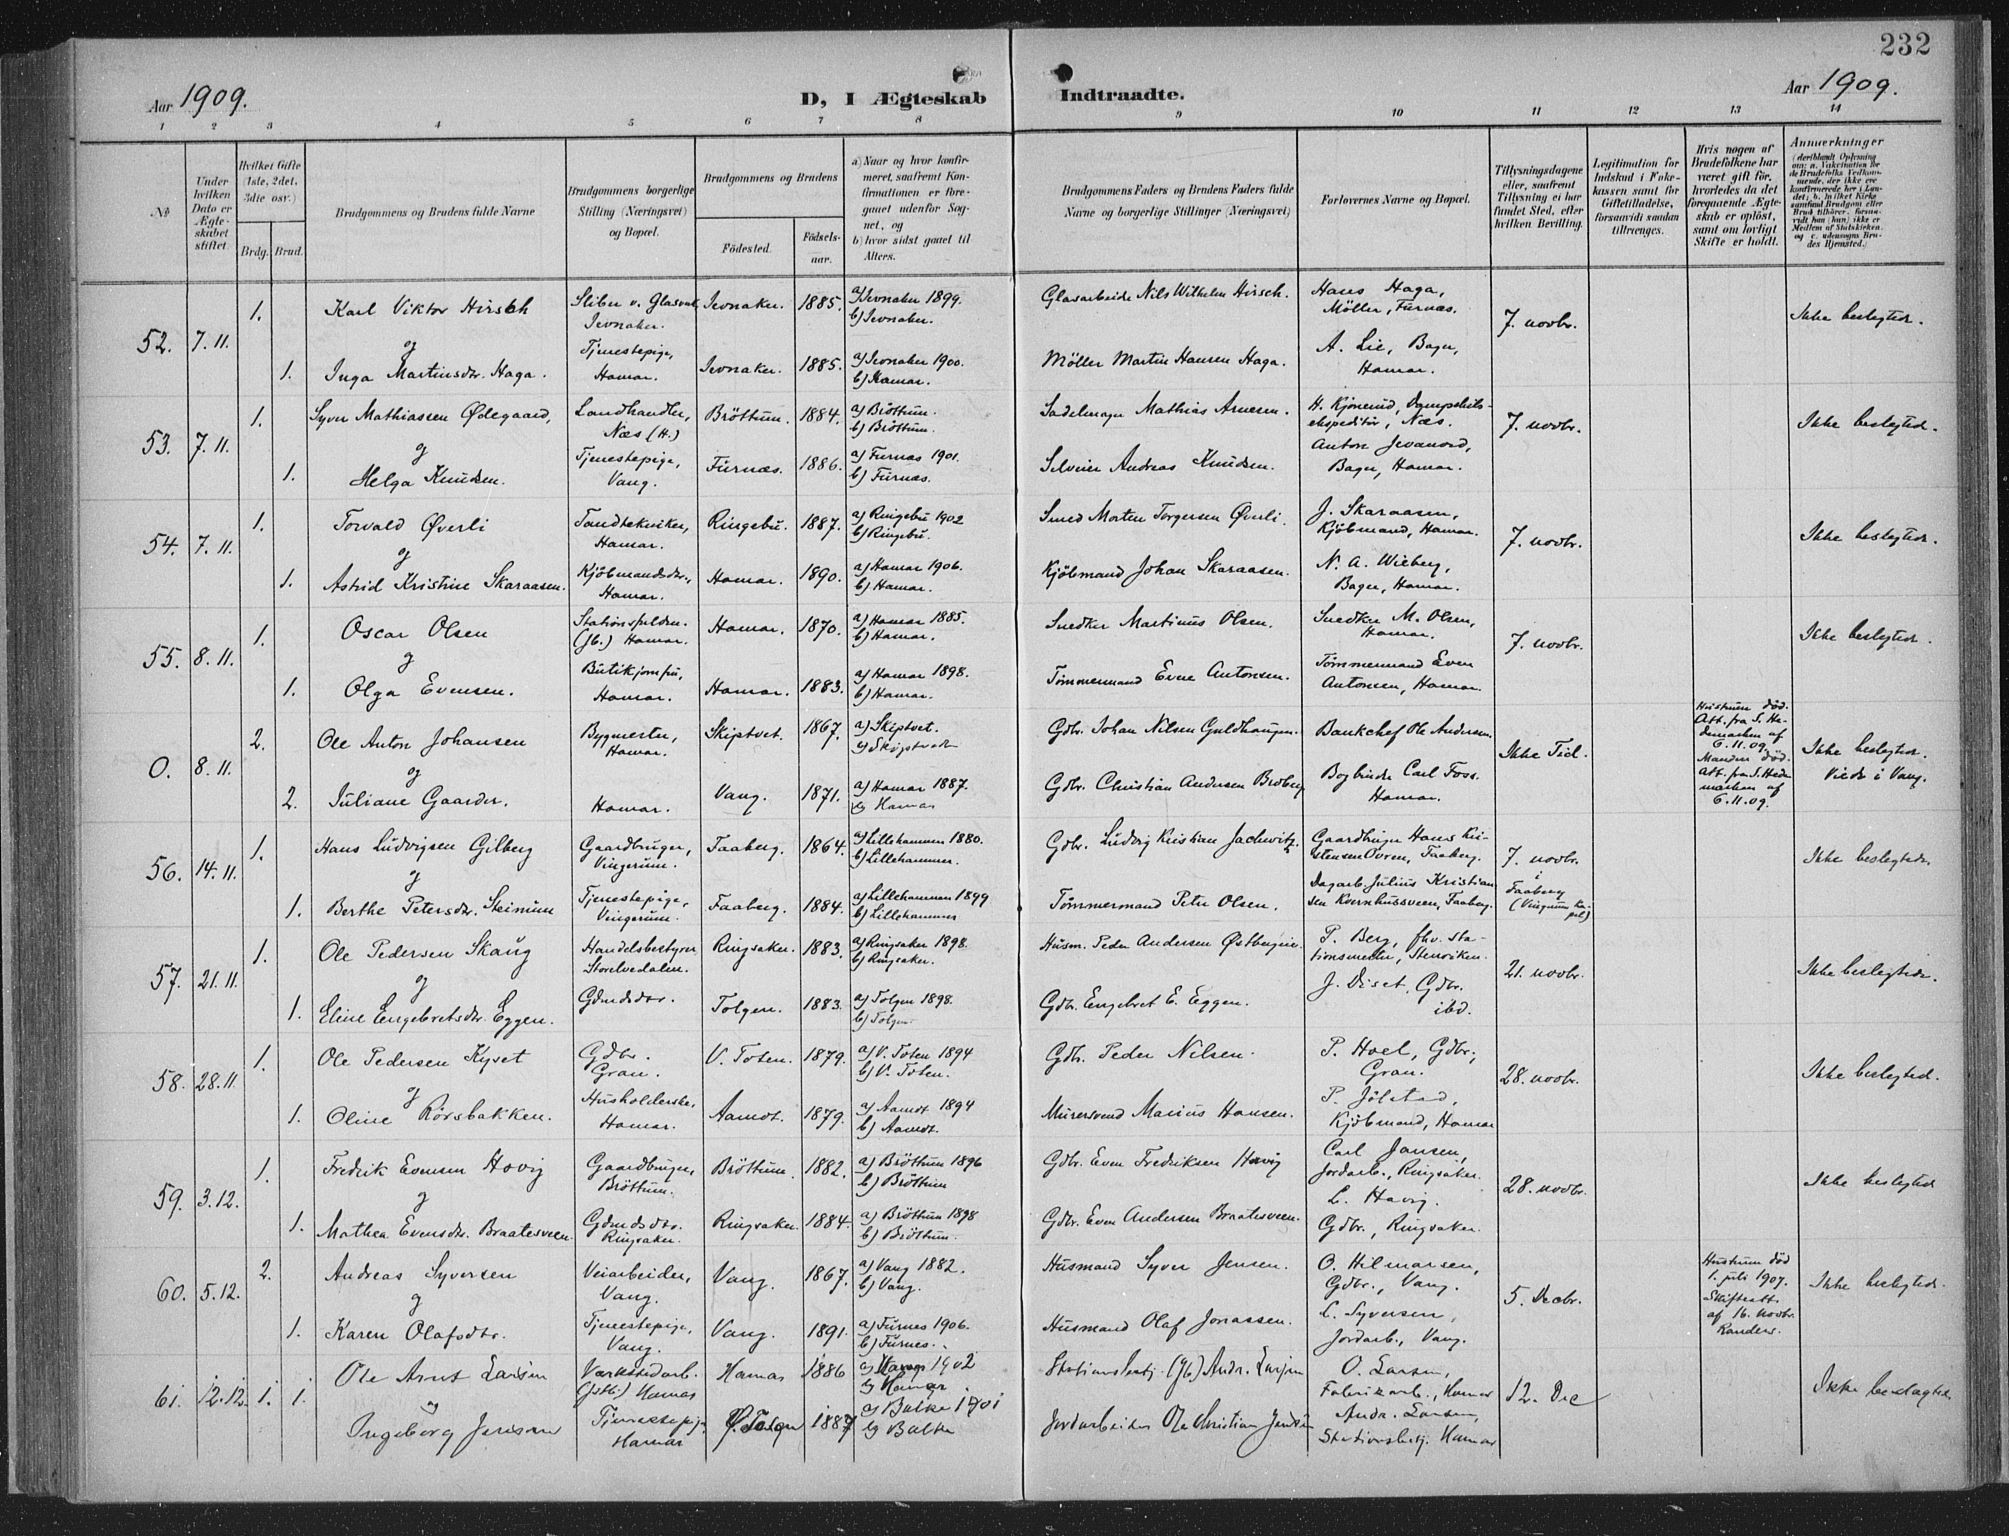 232
Aar 1909.
D, I Ægteskab Indtraadte.
Aar 1909.
1 2 3 4 5 6 7 8 9 10 11 12 13 14
№
Under hvilken Dato er Ægteskabet stiftet
Hvilket Gifte (1ste, 2det, 3die osv.)
Brdg. Brud.
Brudgommens og Brudens fulde Navne
Brudgommens borgerlige Stilling (Næringsvei) og Bopæl.
Brudgommens og Brudens
Födested.
Födsels-aar.
a) Naar og hvor konfirmeret, saafremt Konfirmationen er foregaaet udenfor Sognet, og
b) hvor sidst gaaet til Alters.
Brudgommens Faders og Brudens Faders fulde Navne og borgerlige Stillinger (Næringsvei)
Forlovernes Navne og Bopæl.
Tillysningsdagene eller, saafremt Tillysning ei har fundet Sted, efter hvilken Bevilling.
Legitimation for Indskud i Enkekassen samt for Giftetilladelse, forsaavidt saadan tiltrænges.
Hvis nogen af Brudefolkene har været gift för, hvorledes da det foregaaende Ægteskab er oplöst, samt om lovligt Skifte er holdt.
Anmærkninger
52. 7.11. 1. Karl Viktor Hirsch Sliber v. Glasverk, Jevnaker. Jevnaker. 1885. a) Jevnaker 1899. b) Jevnaker. Glasarbeider Nils Wilhelm Hirsch. Hans Haga, Möller, Furnæs. 7. novbr. Ikke beslegtede.
og
1. Inga Martinsdtr. Haga. Tjenestepige, Hamar. Jevnaker. 1885. a) Jevnaker 1900. b) Hamar. Möller Martin Hansen Haga. A. Lie, Bager, Hamar.
53. 7.11. 1. Syver Mathiassen Ødegaard, Landhandler, Næs (H.) Bröttum. 1884. a) Bröttum. b) Bröttum. Sadelmager Mathias Arnesen. H. Kjønerud, Dampskibsekspeditör, Næs. 7. novbr. Ikke beslegtede.
og
1. Helga Knudsen. Tjenestepige, Vang. Furnæs. 1886. a) Furnæs 1901. b) Furnæs. Selveier Andreas Knudsen. Anton Jevanord, Bager, Hamar.
54. 7.11. 1. Torvald Øverli Tandtekniker, Hamar. Ringebu. 1887. a) Ringebu 1902 b) Ringebu. Smed Morten Torgersen Øverli. J. Skaraasen, Kjöbmand, Hamar. 7. novbr. Ikke beslegtede.
og
1. Astrid Kristine Skaraasen. Kjöbmandsdtr., Hamar. Hamar. 1890. a) Hamar 1906. b) Hamar. Kjöbmand Johan Skaraasen. N. A. Wiberg, Bager, Hamar.
55. 8.11. 1. Oscar Olsen Stationsfuldm. (Jb.) Hamar. Hamar. 1870. a) Hamar 1885. b) Hamar. Snedker Martinus Olsen. Snedker M. Olsen, Hamar. 7. novbr. Ikke beslegtede.
og
1. Olga Evensen. Butikjomfru, Hamar. Hamar. 1883. a) Hamar 1898. b) Hamar. Tömmermand Even Antonsen. Tömmermand Even Antonsen, Hamar.
0. 8.11. 2. Ole Anton Johansen Bygmester, Hamar. Skiptvet. 1867. a) Skiptvet. b) Skiptvedt Gdbr. Johan Nilsen Guldhaugen. Bankchef Ole Andersen. Ikke Tid. Hustruen död. Att. fra S. Hedemarken af 6.11.09. Ikke beslegtede. Viede i Vang.
og
2. Juliane Gaarder. Hamar. Vang. 1871. a) Hamar 1887. b) Hamar Gdbr. Christian Andersen Broberg Bogbinder Carl Foss. Hamar. Manden död. Att. fra S. Hedemarken af 6.11.09.
56. 14.11. 1. Hans Ludvigsen Gilberg Gaardbruger, Vingerum. Faaberg. 1864. a) Lillehammer 1880. b) Lillehammer. Gdbr. Ludvig Kristian Jachwitz. Gaardbruger Hans Kristensen Övren, Faaberg. 7. novbr. i Faaberg (Vingrum Kapel) Ikke beslegtede.
og
1. Berthe Petersdtr. Steinum Tjenestepige, Vingerum. Faaberg. 1884. a) Lillehammer 1899 b) Lillehammer Tömmermand Peter Olsen. Dagarb. Julius Kristiansen Kvernhusveen, Faaberg.
57. 21.11. 1. Ole Pedersen Skaug Handelsbestyrer, Storelvedalen. Ringsaker. 1883. a) Ringsaker 1898. b) Ringsaker. Husm. Peder Andersen Østbergeie. P. Berg, fhv. Stationsmester, Stenviken. 21. novbr. Ikke beslegtede.
og
1. Eline Engebretsdtr. Eggen. Gdmdsdtr. Tolgen. 1883. a) Tolgen 1898. b) Tolgen Gdbr. Engebret E. Eggen. J. Diset, Gdbr. ibd.
58. 28.11. 1. Ole Pedersen Kyset Gdbr. Gran. V. Toten. 1879. a) V. Toten 1894 b) V. Toten. Gdbr. Peder Nilsen. P. Hoel, Gdbr., Gran. 28. novbr. Ikke beslegtede.
og
1. Oline Rörsbakken. Husholderske, Hamar. Aamot. 1879. a) Aamot 1894 b) Aamot. Murersvend Marius Hansen. P. Jölstad, Kjöbmand, Hamar
59. 3.12. 1. Fredrik Evensen Hovig Gaardbruger, Bröttum. Bröttum. 1882. a) Bröttum 1896 b) Bröttum Gdbr. Even Fredriksen Hovig Carl Jansen, Jordarb., Ringsaker. 28. novbr. Ikke beslegtede
og
1. Mathea Evensdtr. Braatesveen. Gdmdsdtr. Ringsaker. Ringsaker. 1884. a) Bröttum 1898 b) Bröttum. Gdbr. Even Andersen Braatesveen. L. Havig. Gdbr., Ringsaker.
60. 5.12. 2. Andreas Syversen Veiarbeider, Vang. Vang. 1867. a) Vang 1882. b) Vang. Husmand Syver Jensen. O. Hilmarsen, Gdbr., Vang. 5. Decbr. Hustruen död 1. juli 1907. Skifteatt. af 16. novbr. Ikke beslegtede.
og
1. Karen Olafsdtr. Tjenestepige, Vang. Vang. 1891. a) Furnes 1906. b) Furnes. Husmand Olaf Jonassen. L. Syversen, Jordarb., Vang.
61. 12.12. 1. 1. Ole Arnt Larsen Værkstedarb. (Jstb.) Hamar Hamar 1886 a) Hamar 1902 b) Hamar Stationsbetj. (Jb.) Andr. Larsen O. Larsen, Fabrikarb., Hamar 12. Dec Ikke beslægtede
og
Ingeborg Jensen Tjenestepige Hamar Ø. Toten 1887 a) Balke 1901 b) Balke Jordarbeider Ole Christian Jensen Andr. Larsen, Stationsbetj. Hamar